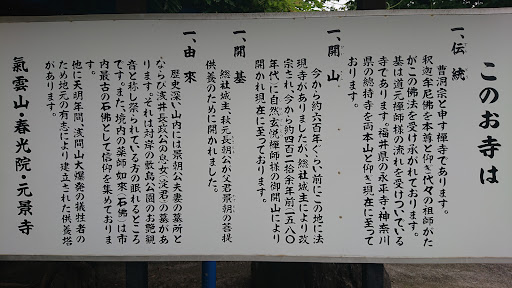 このお寺は
一、伝統
曹洞宗と申す禅寺であります。
釈迦牟尼佛を本尊と仰ぎ代々の祖師がた
がこの佛法を受け承がれております。
基は道元禅師様の流れを受けついている
寺であります。福井県の永平寺・神奈川
県の総持寺を両本山と仰ぎ現在に至って
おります。
一、開山
今から約六百年くらい前にこの地に法
現寺がありましたが、総社城主により改
宗され、今から約四百二拾余年前一五八〇
年代に自然玄悦禅師様の御開山により
開かれ現在に至っております。
一、開基
総社城主、秋元長朝公が父君景朝の菩提
供養のために開かれました。
一、由來
歴史深い山内には景朝公夫妻の墓所と
ならび浅井長政公の息女(淀君)の墓があ
ります。それは対岸の敷島公園のお艶観
音と称し祭られている方の眠れるところ
です。また、境内の薬師如來(石佛)は市
内最古の石佛として信仰を集めておりま
す。
他に天明年間、浅間山大爆発の犠牲者の
ため地元の有志により建立された供養塔
があります。
氣雲山・春光院・元景寺